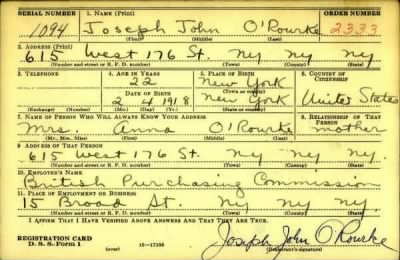 SERIAL NUMBER 1. NAME (Print) ORDER NUMBER
1094 Joseph John O'Rourke 2333
(First) (Middle) (Last)
2. ADDRESS (Print)
615 West 176 St. NY NY NY
(Number and street or R. F. D. number) (Town) (County) (State)
3. TELEPHONE 4. AGE IN YEARS 5. PLACE OF BIRTH 6. COUNTRY OF CITIZENSHIP
22 New York
(Town or county)
DATE OF BIRTH
2 4 1918 New York United States
(Exchange) (Number) (Mo.) (Day) (Yr.) (State or country)
7. NAME OF PERSON WHO WILL ALWAYS KNOW YOUR ADDRESS 8. RELATIONSHIP OF THAT PERSON
Mrs. Anna O'Rourke mother
(Mr., Mrs., Miss) (First) (Middle) (Last)
9. ADDRESS OF THAT PERSON
615 West 176 St. NY NY NY.
(Number and street or R. F. D. number) (Town) (County) (State)
10. EMPLOYER'S NAME
British Purchasing Commission
11. PLACE OF EMPLOYMENT OR BUSINESS
15 Broad St. NY NY NY.
(Number and street or R. F. D. number) (Town) (County) (State)
I AFFIRM THAT I HAVE VERIFIED ABOVE ANSWERS AND THAT THEY ARE TRUE.
REGISTRATION CARD
D. S. S. Form 1 (over) 16—17105 Joseph John O'Rourke
(Registrant's signature)